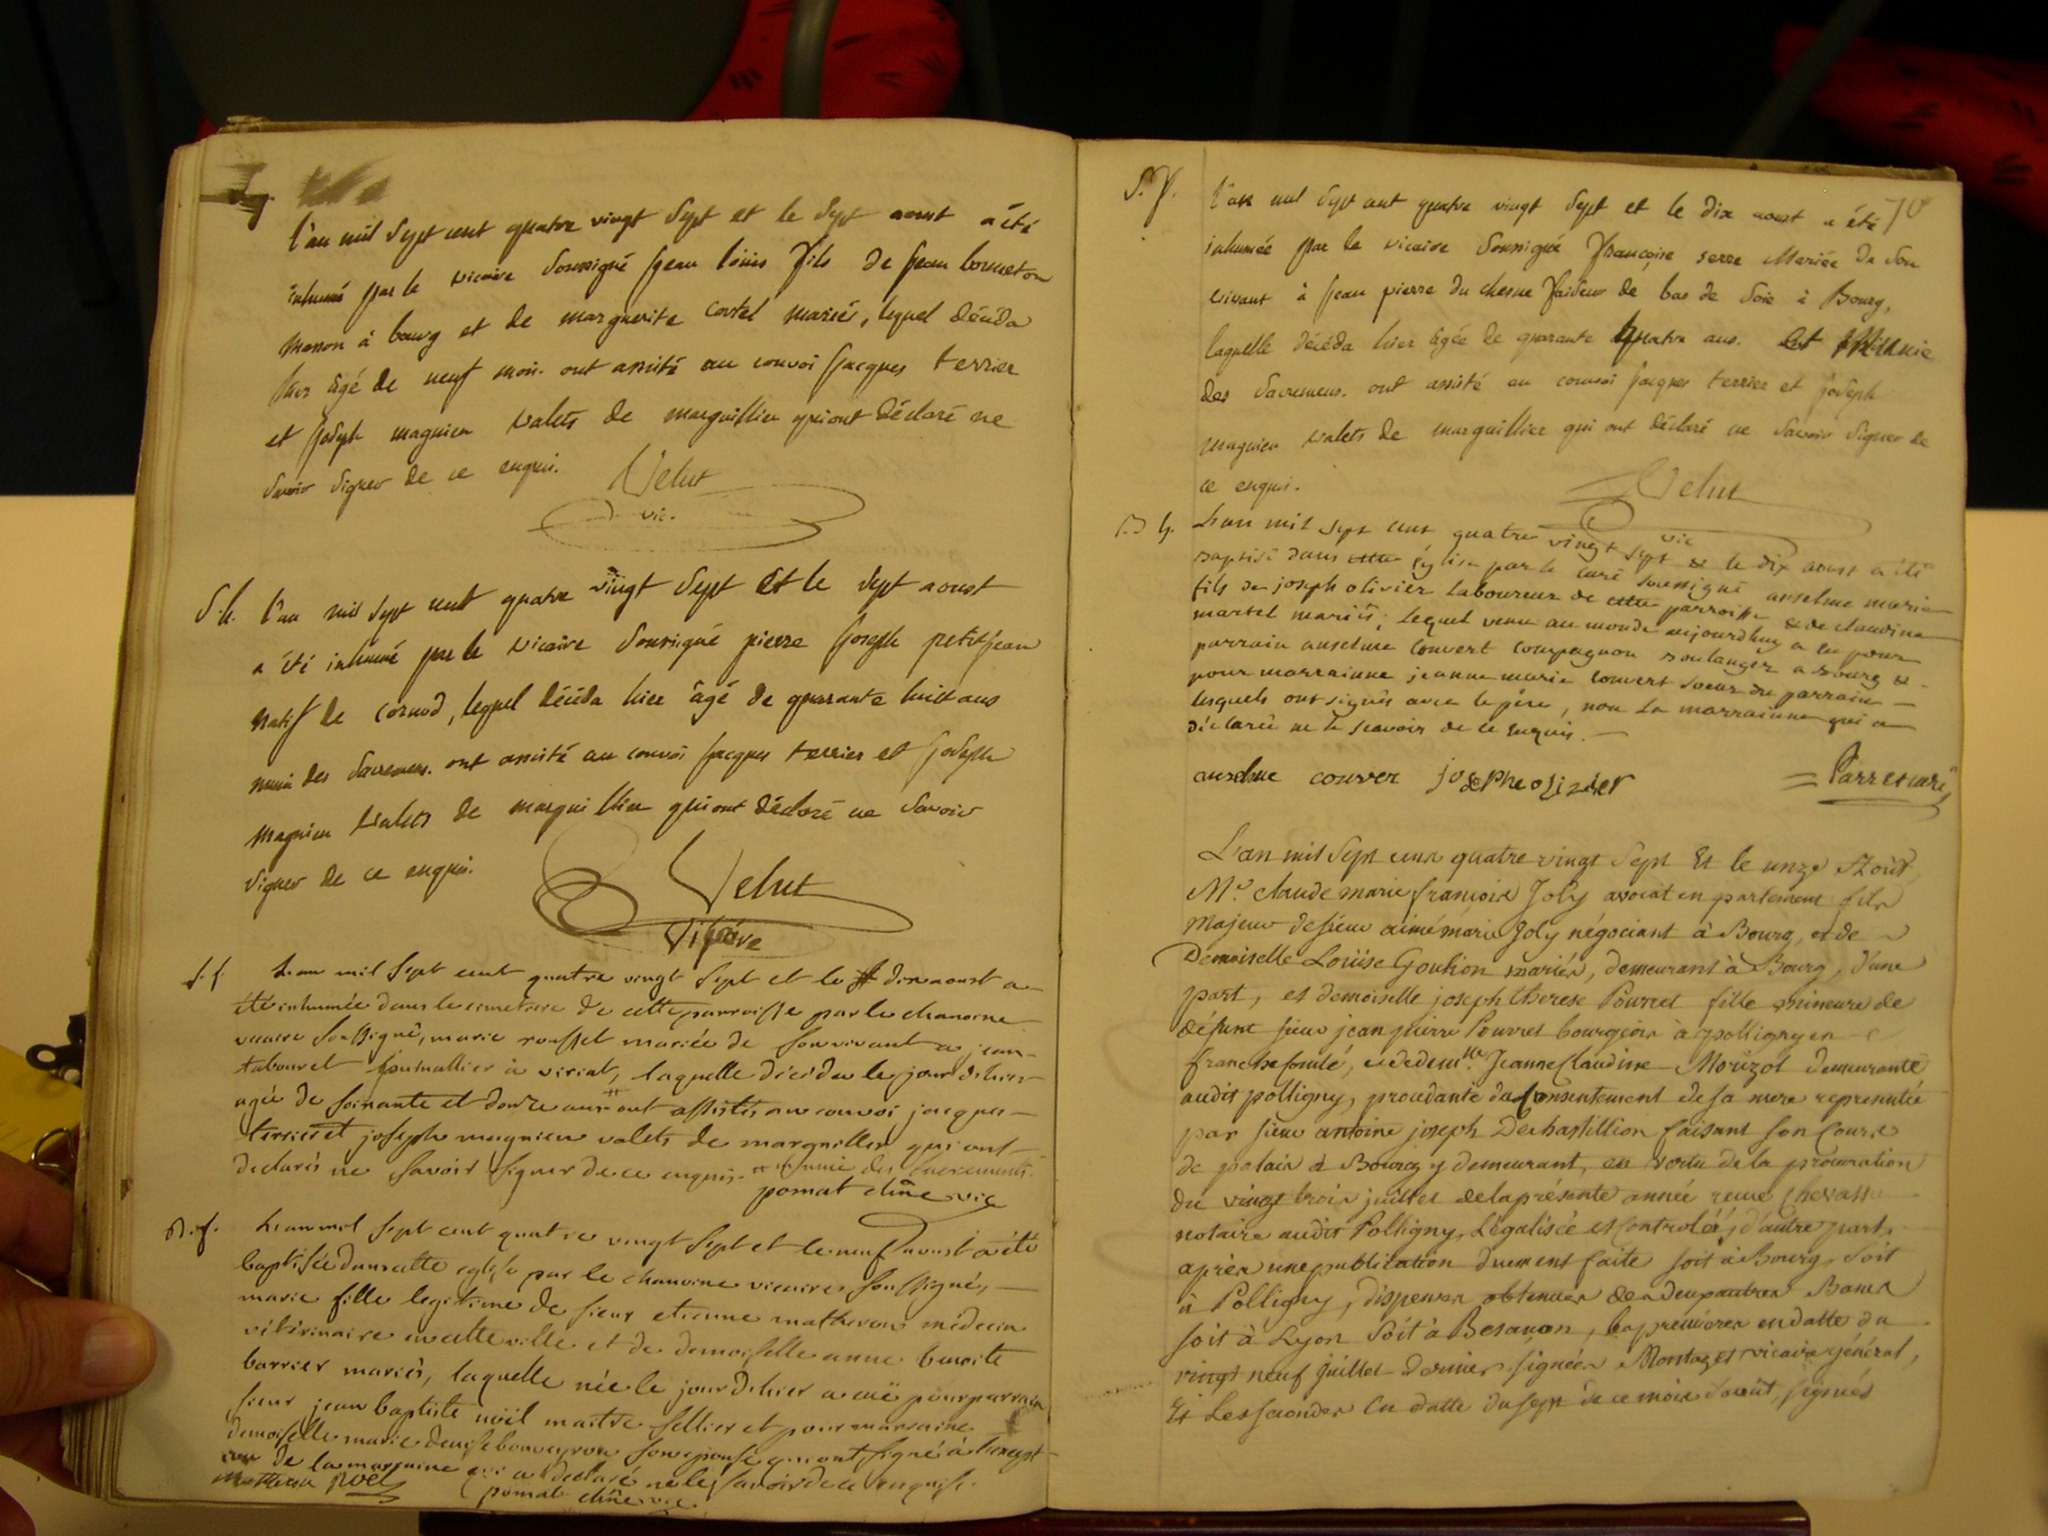 l'an mil sept cent quatre vingt sept et le sept aoust a été
inhumé par le vicaire soussigné jean louis fils de jean bonneton
masson à bourg et de marguerite cartel mariés, lequel décéda
hier agé de neuf mois. ont assisté au convoi jacques terrier
et joseph magnien valets de marguillier qui ont déclaré ne
savoir signer de ce enquis.
Velut
vic.
S.h. l'an mil sept cent quatre vingt sept et le sept aoust
a été inhumé par le vicaire soussigné pierre joseph petitjean
natif de cornod, lequel décéda hier âgé de quarante huit ans
muni des sacremens. ont assisté au convoi jacques terrier et joseph
magnien valets de marguillier qui ont déclaré ne savoir
signer de ce enquis.
Velut
vicaire
S.f. L'an mil sept cent quatre vingt sept et le dix aoust a
été inhumée dans le cimetiere de cette parroisse par le chanoine
vicaire soussigné, marie rousset mariée de son vivant a jean
tabouret à viriat, laquelle décéda le jour d'hier
agée de soixante et douze ans # ont assistés au convoi jacques
terrier et joseph magnien valets de marguillier qui ont
declarés ne savoir signer de ce enquis. # munie des sacrements.
pomat chne vic
B.f. L'an mil sept cent quatre vingt sept et le neuf aoust a été
baptisée dans cette eglise par le chanoine vicaire soussigné,
marie fille legitime de sieur etienne matheron médecin
vétérinaire en cette ville et de demoiselle anne benoite
barrier mariés, laquelle née le jour d'hier a eu pour parrain
sieur jean baptiste noël maitre sellier et pour marraine
demoiselle marie denise bouveyron son epouse qui ont signé à l'except
ion de la marraine qui a declaré ne le savoir de ce enquise.
Matheron Noel pomat chne vic
S.f. l'an mil sept cent quatre vingt sept et le dix aoust a été 70
inhumée par le vicaire soussigné françoise serre mariée de son
vivant à jean pierre du chesne faiseur de bas de soie à Bourg,
laquelle décéda hier âgée de quarante quatre ans. et munie
des sacremens. ont assisté au convoi jacques terrier et joseph
magnien valets de marguillier qui ont déclaré ne savoir signer de
ce enquis.
Velut
vic
B g. L'an mil sept cent quatre vingt sept & le dix aoust a été
baptisé dans cette église par le curé soussigné anselme marie
fils de joseph olivier laboureur de cette parroisse & de claudine
martel mariés; lequel venu au monde aujourdhuy a eu pour
parrain anselme convert compagnon boulanger a Bourg &
pour marrainne jeanne marie convert soeur du parrain
lesquels ont signés avec le père, non la marrainne qui a
déclaré ne le scavoir de ce enquis.
anselme conver joseph olizier Parret curé
L'an mil sept cent quatre vingt sept Et le unze Aoust
Mr. claude marie françois Joly avocat en parlement fils
majeur de sieur aimé marie Joly négociant à Bourg, et de
Demoiselle Loüise Goution mariés, demeurant à Bourg, d'une
part, et demoiselle joseph therese Pourret fille mineure de
défunt sieur jean pierre Pourret bourgeois à polligny en
franche Comté, et de demlle. Jeanne Claudine Morizot demeurante
audit polligny, procedante du Consentement de sa mere representée
par sieur antoine joseph Dechastillion faisant son Cours
de palais à Bourg y demeurant, en vertu de la procuration
du vingt trois juillet de la présente année recue Chevass
notaire audit Polligny, Légalisée et Controlée, d'autre part,
après une publication duement faite soit à Bourg, soit
à Polligny, dispenses obtenues des deux autres Bans
soit à Lyon soit à Besancon, les premières en datte du
vingt neuf juillet dernier signées Montaget vicaire général,
Et Les secondes En datte du sept de ce mois d'aoüt, signés